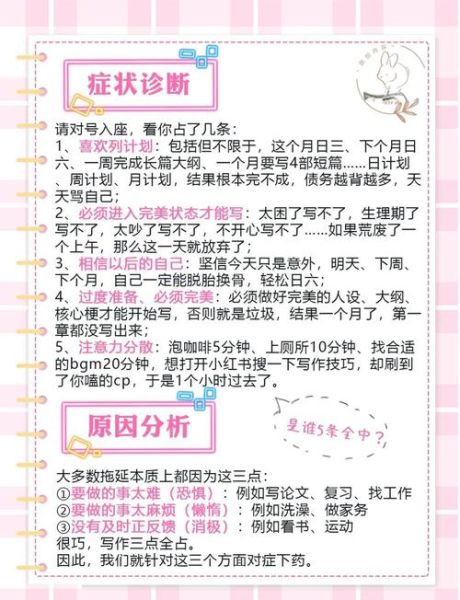 症状诊断
请对号入座，看你占了几条：
1、喜欢列计划：包括但不限于，这个月日三、下个月日
六、一周完成长篇大纲、一个月要写4部短篇……日计划
、周计划、月计划，结果根本完不成，债务越背越多，天
天骂自己；
2、必须进入完美状态才能写：太困了写不了，生理期了
写不了，太吵了写不了，不开心写不了……如果荒废了一
个上午，那么这一天就放弃了；
3、相信以后的自己：坚信今天只是意外，明天、下周、
下个月，自己一定能脱胎换骨，轻松日六；
4、过度准备、必须完美：必须做好完美的人设、大纲、
核心梗才能开始写，否则就是垃圾，结果一个月了，第一
章都没写出来；
5、注意力分散：泡咖啡5分钟、上厕所10分钟、找合适
的bgm20分钟，想打开小红书搜一下写作技巧，却刷到
了你嗑的cp，于是1个小时过去了。
是谁5条全中？
原因分析
大多数拖延本质上都因为这三点：
①要做的事太难（恐惧）：例如写论文、复习、找工作
②要做的事太麻烦（懒惰）：例如洗澡、做家务
③没有及时正反馈（消极）：例如看书、运动
很巧，写作三点全占。
因此，我们就针对这三个方面对症下药。